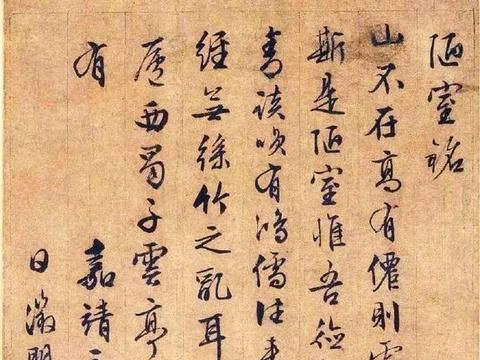 陋室銘
山不在高有僊則
斯是陋室惟吾德
青談咲有鴻儒往来
經無絲竹之亂耳
廬西蜀子雲亭
有
嘉靖
日徵明